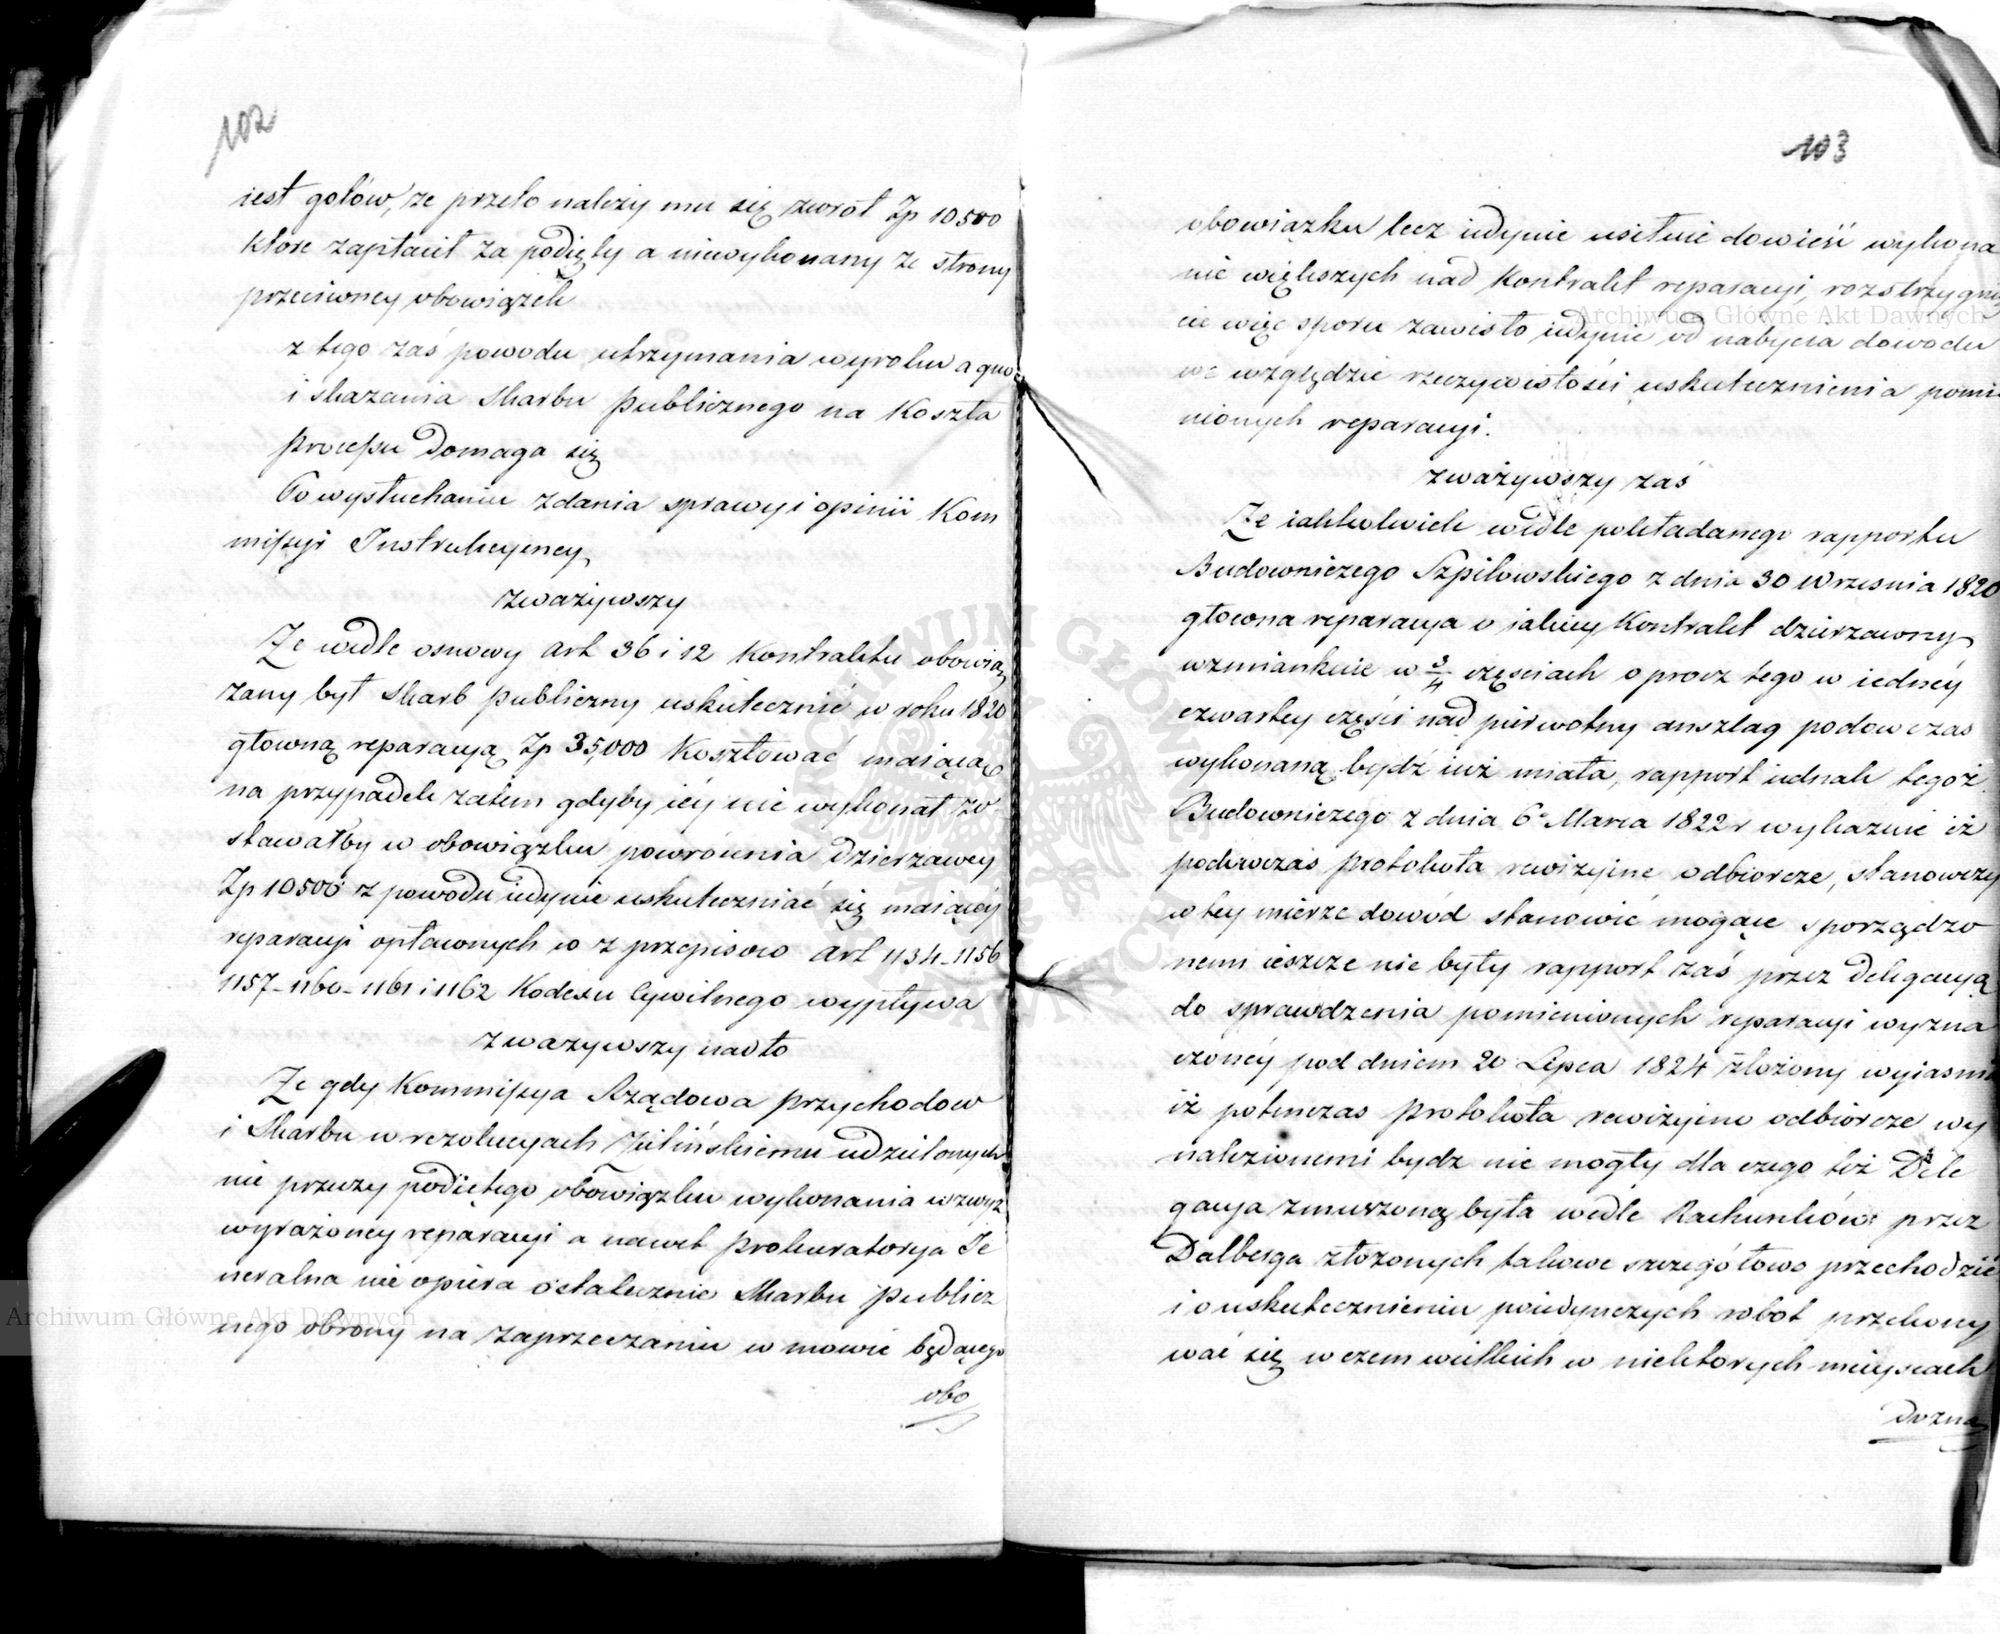 102
iest gotów, że przeto należy mu się zwrot Zp 10500
które zapłacił za podięty a niewykonany ze strony
przeciwney obowiązek
z tego zaś powodu utrzymania wyroku a quo
i skazania Skarbu publicznego na Koszta
processu domaga się
Po wysłuchaniu zdania sprawy i opinii Kom
missyi Instrukcyiney
zważywszy
Ze wedle osnowy art 36 i 12 Kontraktu obowią
zany był Skarb publiczny uskutecznić w roku 1820
głowną reparacyą Zp 35,000 Kosztować maiącą
na przypadek zatem gdyby iéy nie wykonał zo
stawałby w obowiązku powrócenia dzierzawcy
Zp 10500 z powodu iedynie uskuteczniać się maiącéy
reparacyi opłaconych co z przepisów art 1134-1156
1157-1160-1161 i 1162 Kodexu Cywilnego wypływa
zważywszy nadto
Ze gdy Kommissya Rządowa przychodow
i Skarbu w rezolucyach Zielińskiemu udzielonych
nie przeczy podiętego obowiązku wykonania wzwyż
wyrażoney reparacyi a nawet prokuratorya Je
neralna nie opiera ostatecznie Skarbu publicz
nego obrony na zaprzeczaniu w mowie będącego
obo
103
obowiązku lecz iedynie usiłuie dowieść wykona
nie większych nad Kontrakt reparacyi, rozstrzygnię
cie więc sporu zawisło iedynie od nabycia dowodu
we względzie rzeczywistości uskutecznienia pomie
nionych reparacyi.
zważywszy zaś
Ze iakkolwiek wedle pokładanego rapportu
Budowniczego Szpilowskiego z dnia 30 Wrzesnia 1820
głowna reparacya o iakiey Kontrakt dzierzawny
wzmiankuie w 3/4 częsciach oprocz tego w iednéy
czwartey części nad pierwotny anszlag podowczas
wykonaną bydź iuż miała, rapport iednak tegoż
Budowniczego z dnia 6o Marca 1822 r wykazuie iż
podowczas protokoła rewizyine odbiorcze, stanowczy
w tey mierze dowód stanowić mogące sporządzo
nemi ieszcze nie były rapport zaś przez Delegacyą
do sprawdzenia pomienionych reparacyi wyzna
czonéy pod dniem 20 Lipca 1824 złożony wyiasnia
iż potenczas protokoła rewizyino odbiorcze wy
nalezionemi bydz nie mogły dla czego też Dele
gacya zmuszoną była wedle Rachunków przez
Dalberga złozonych takowe szczegółowo przechodzić
i o uskutecznieniu poiedynczych robot przekony
wać się w czem wielkich w niektorych mieyscach
Dozna
Archiwum Główne Akt Dawnych
Archiwum Główne Akt Dawnych
ARCHIWUM GŁÓWNE AKT DAWNYCH